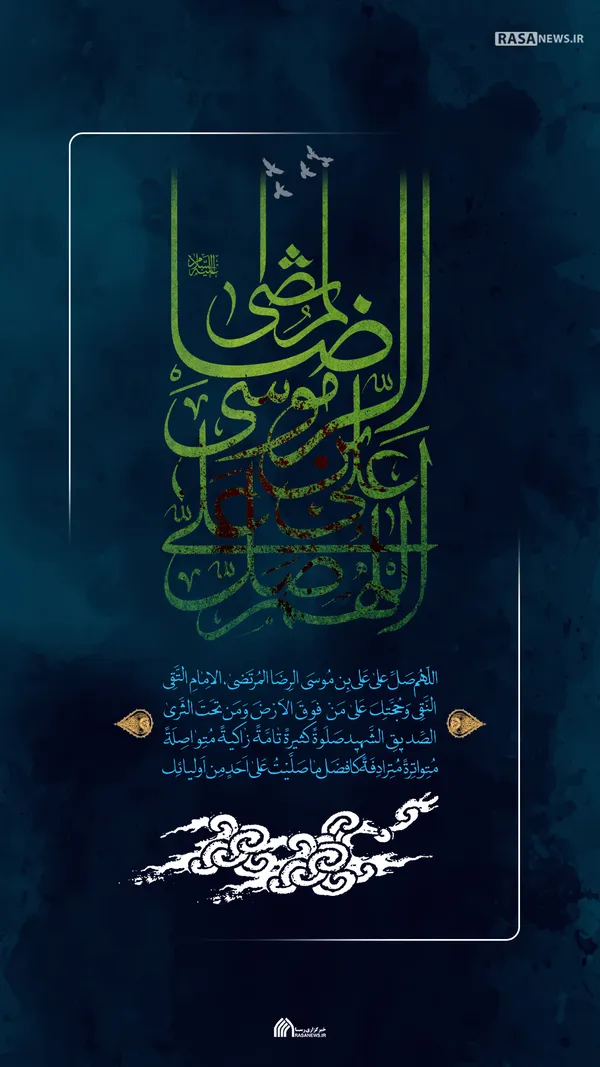 RASANEWS.IR
عليه السلام
الرضا المرتضى
علی بن موسی
اللهم صل علی
اللّهُم صَلِّ عَلیٰ عَلی بِن مُوسَی الرِضَا المُرتَضی، الامِامِ التَّقِی
النَّقِی وَحُجَّتِكَ عَلیٰ مَن فَوقَ الاَرضِ وَمَن تَحتَ الثَّریٰ
الصّدیقِ الشَّهیدِ صَلَوةً كَثیرةً تٰامَّةً زٰاكیَةً مُتِوٰاصِلَةً
مُتِوٰاتِرةً مُتِرٰادِفَةً كَافضَلِ مٰا صَلَّیتَ عَلیٰ اَحَدٍ مِن اَولیٰائِك
خبرگزاری رسا
RASANEWS.IR